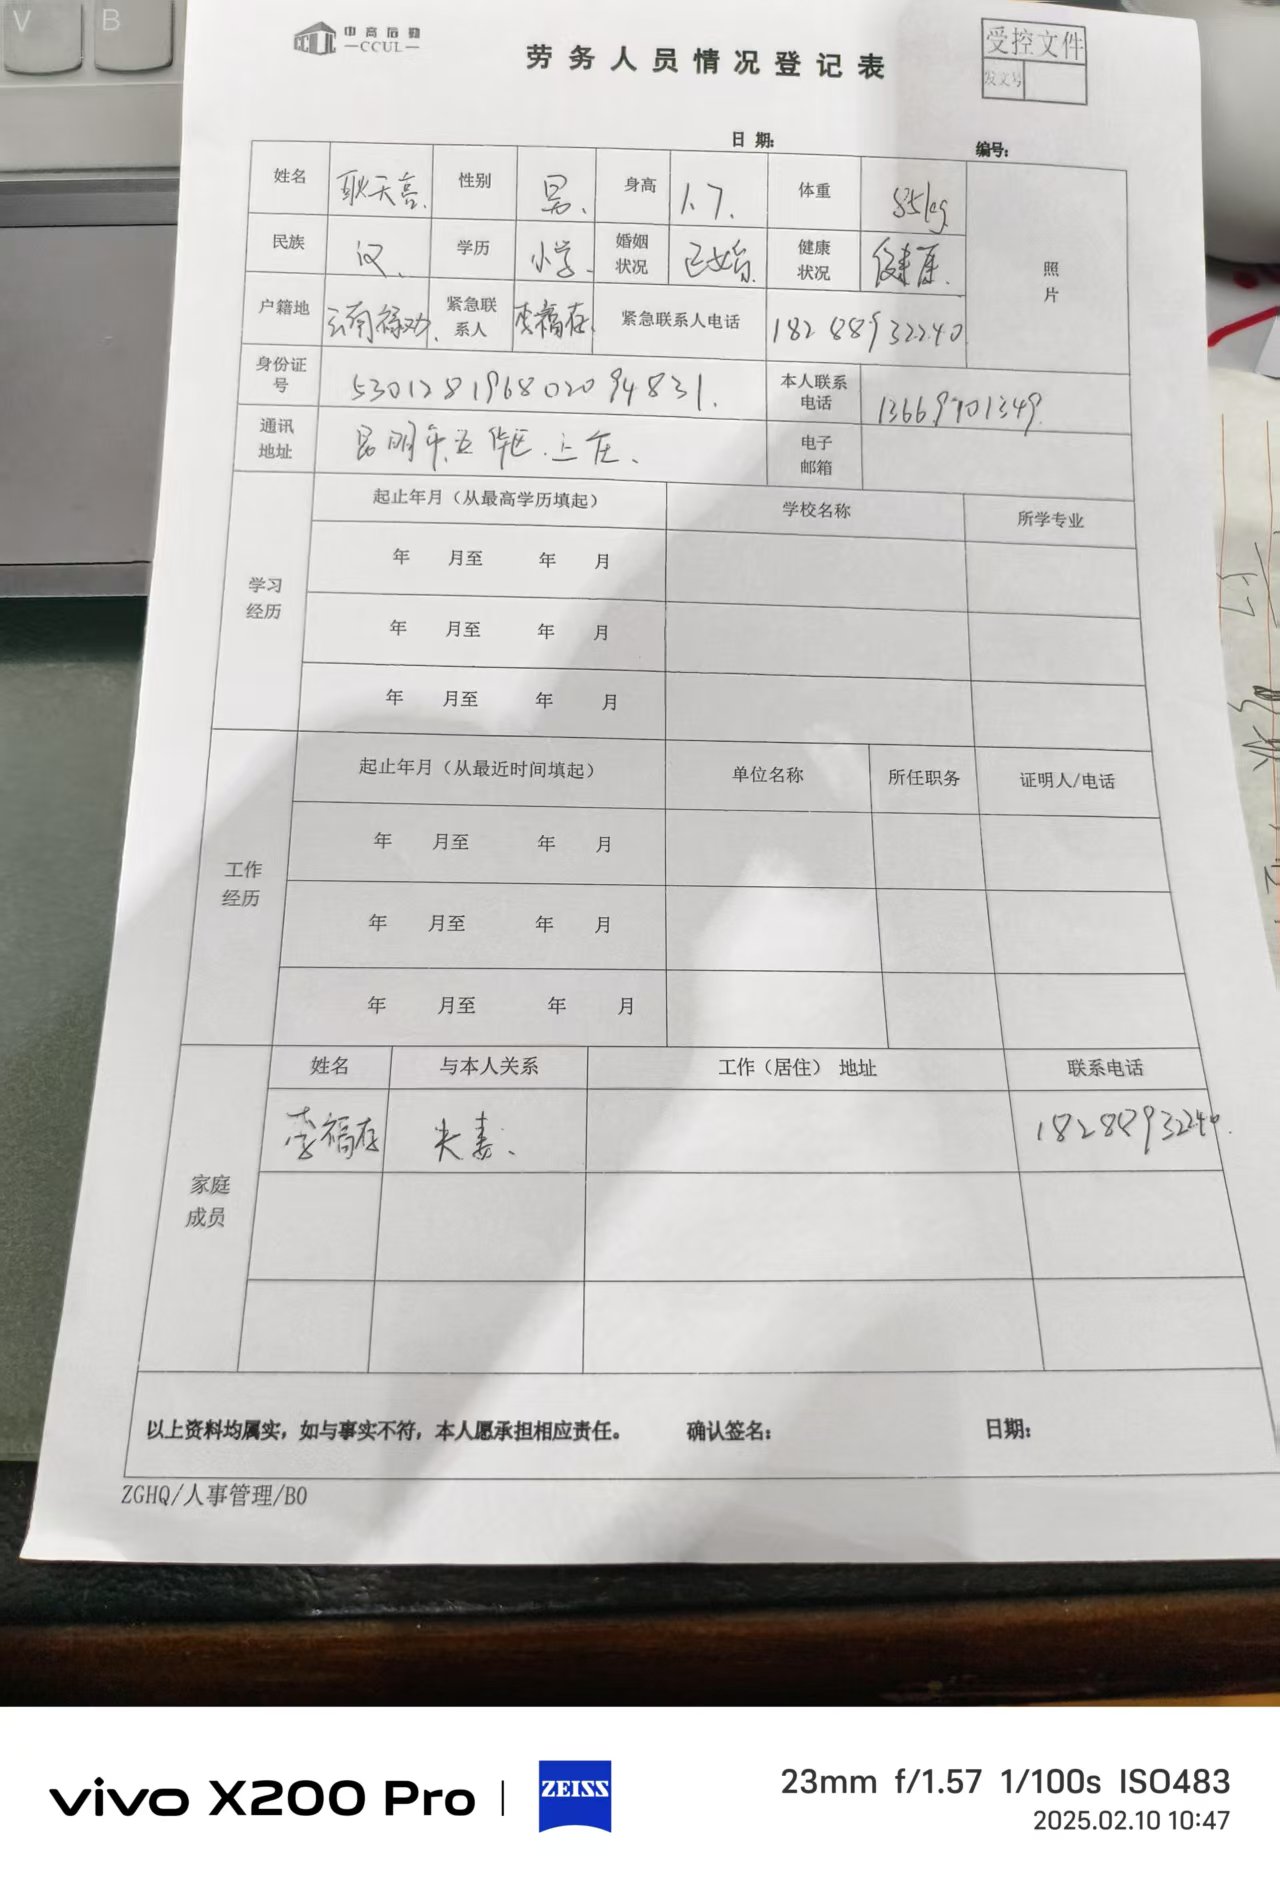 V B
中高后勤
CCUL
劳务人员情况登记表
受控文件
发文号
日期：
编号：
姓名 耿天亮. 性别 男、 身高 1.7. 体重 85kg
民族 汉、 学历 小学. 婚姻状况 已婚. 健康状况 健康.
照片
户籍地 云南禄劝. 紧急联系人 李福存 紧急联系人电话 18288932240
身份证号 530128196802094831. 本人联系电话 13669701349.
通讯地址 昆明市五华区.上庄、 电子邮箱
学习经历 起止年月（从最高学历填起） 学校名称 所学专业
年 月至 年 月
年 月至 年 月
年 月至 年 月
工作经历 起止年月（从最近时间填起） 单位名称 所任职务 证明人/电话
年 月至 年 月
年 月至 年 月
年 月至 年 月
家庭成员 姓名 与本人关系 工作（居住） 地址 联系电话
李福存 夫妻、 18288932240.
以上资料均属实，如与事实不符，本人愿承担相应责任。 确认签名： 日期：
ZGHQ/人事管理/B0
vivo X200 Pro | ZEISS
23mm f/1.57 1/100s ISO483
2025.02.10 10:47